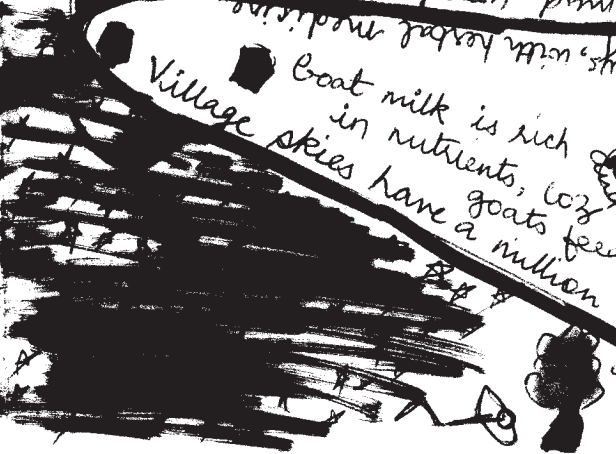 with herbal medicine
Goat milk is rich
in nutrients, coz
goats fee
Village skies have a million